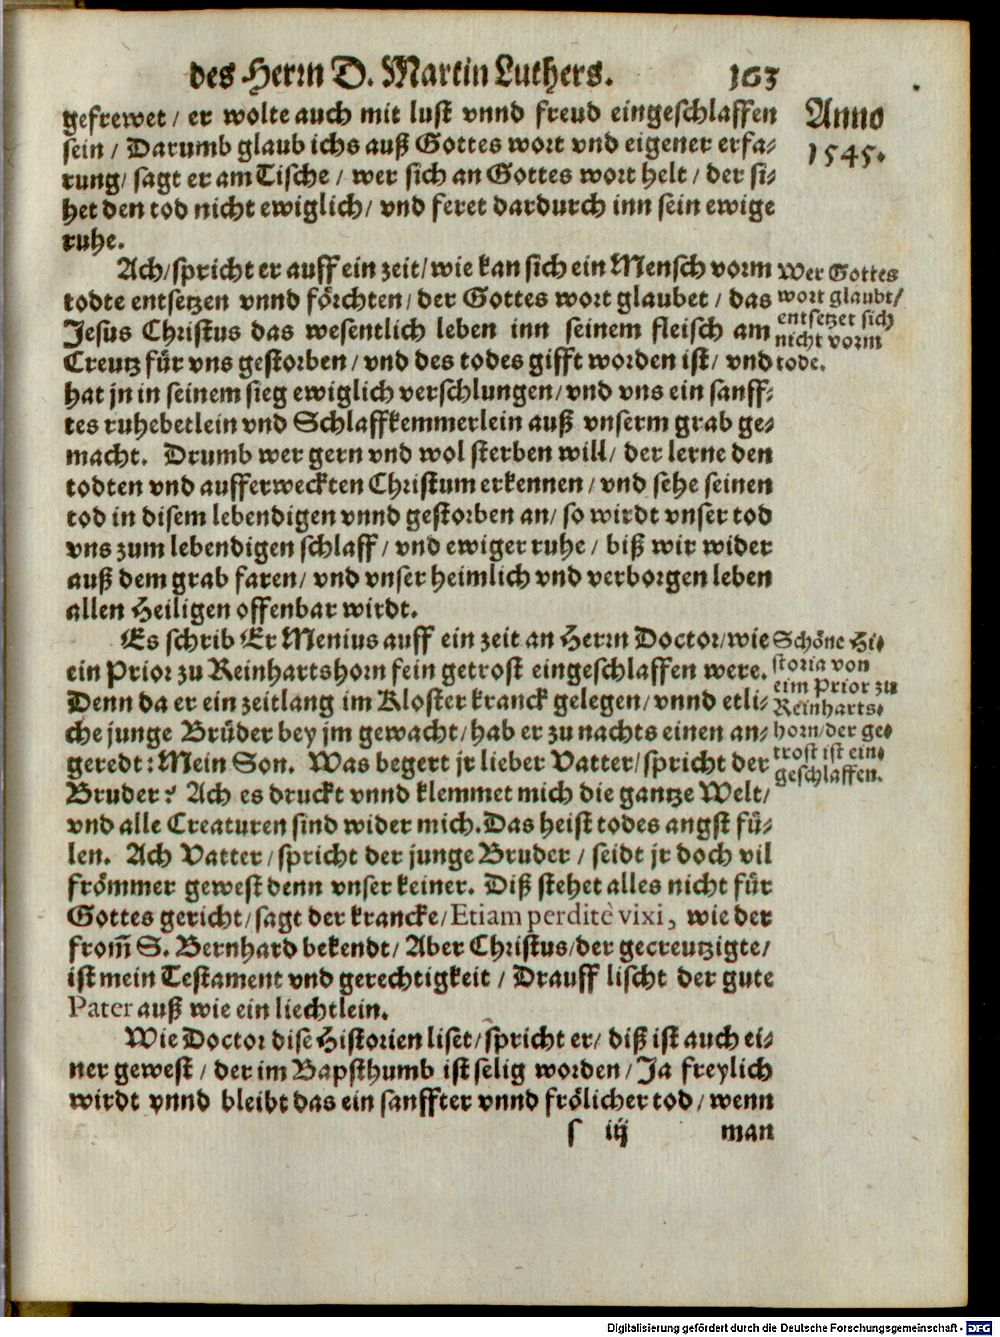 des Herrn D. Martin Luthers. 163
gefrewet / er wolte auch mit lust vnnd freud eingeschlaffen
sein / Darumb glaub ichs auß Gottes wort vnd eigener erfa⸗
rung/ sagt er am Tische / wer sich an Gottes wort helt / der si⸗
het den tod nicht ewiglich/ vnd feret dardurch inn sein ewige
ruhe.
Anno
1545.
Ach/spricht er auff ein zeit/wie kan sich ein Mensch vorm
todte entsetzen vnnd förchten/ der Gottes wort glaubet / das
Jesus Christus das wesentlich leben inn seinem fleisch am
Creutz für vns gestorben / vnd des todes gifft worden ist/ vnd
hat jn in seinem sieg ewiglich verschlungen/vnd vns ein sanff⸗
tes ruhebetlein vnd Schlaffkemmerlein auß vnserm grab ge⸗
macht. Drumb wer gern vnd wol sterben will/ der lerne den
todten vnd aufferweckten Christum erkennen / vnd sehe seinen
tod in disem lebendigen vnnd gestorben an/ so wirdt vnser tod
vns zum lebendigen schlaff / vnd ewiger ruhe / biß wir wider
auß dem grab faren/ vnd vnser heimlich vnd verborgen leben
allen Heiligen offenbar wirdt.
Wer Gottes
wort glaubt/
entsetzet sich
nicht vorm
tode.
Es schrib Er Menius auff ein zeit an Herrn Doctor/wie
ein Prior zu Reinhartshorn fein getrost eingeschlaffen were.
Denn da er ein zeitlang im Kloster kranck gelegen/ vnnd etli⸗
che junge Brüder bey jm gewacht/ hab er zu nachts einen an⸗
geredt: Mein Son. Was begert jr lieber Vatter/spricht der
Bruder? Ach es druckt vnnd klemmet mich die gantze Welt/
vnd alle Creaturen sind wider mich. Das heist todes angst fü⸗
len. Ach Vatter /spricht der junge Bruder / seidt jr doch vil
frömmer gewest denn vnser keiner. Diß stehet alles nicht für
Gottes gericht/sagt der krancke/Etiam perditè vixi, wie der
from̃ S. Bernhard bekendt/ Aber Christus/der gecreutzigte/
ist mein Testament vnd gerechtigkeit / Drauff lischt der gute
Pater auß wie ein liechtlein.
Schöne Hi⸗
storia von
eim Prior zu
Reinharts⸗
horn/der ge⸗
trost ist ein⸗
geschlaffen.
Wie Doctor dise Historien liset/spricht er/ diß ist auch ei⸗
ner gewest / der im Bapsthumb ist selig worden / Ja freylich
wirdt vnnd bleibt das ein sanffter vnnd frölicher tod / wenn
s iij man
Digitalisierung gefördert durch die Deutsche Forschungsgemeinschaft - DFG